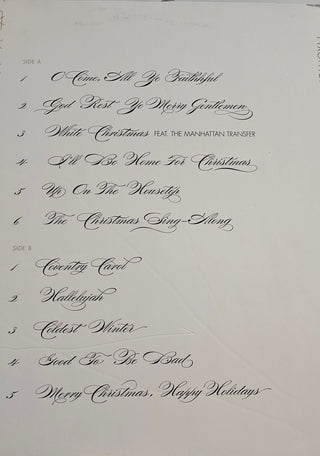 SIDE A
1 O Come, All Ye Faithful
2 God Rest Ye Merry Gentlemen
3 White Christmas FEAT. THE MANHATTAN TRANSFER
4 I'll Be Home For Christmas
5 Up On The Housetop
6 The Christmas Sing-Along
SIDE B
1 Coventry Carol
2 Hallelujah
3 Coldest Winter
4 Good To Be Bad
5 Merry Christmas, Happy Holidays